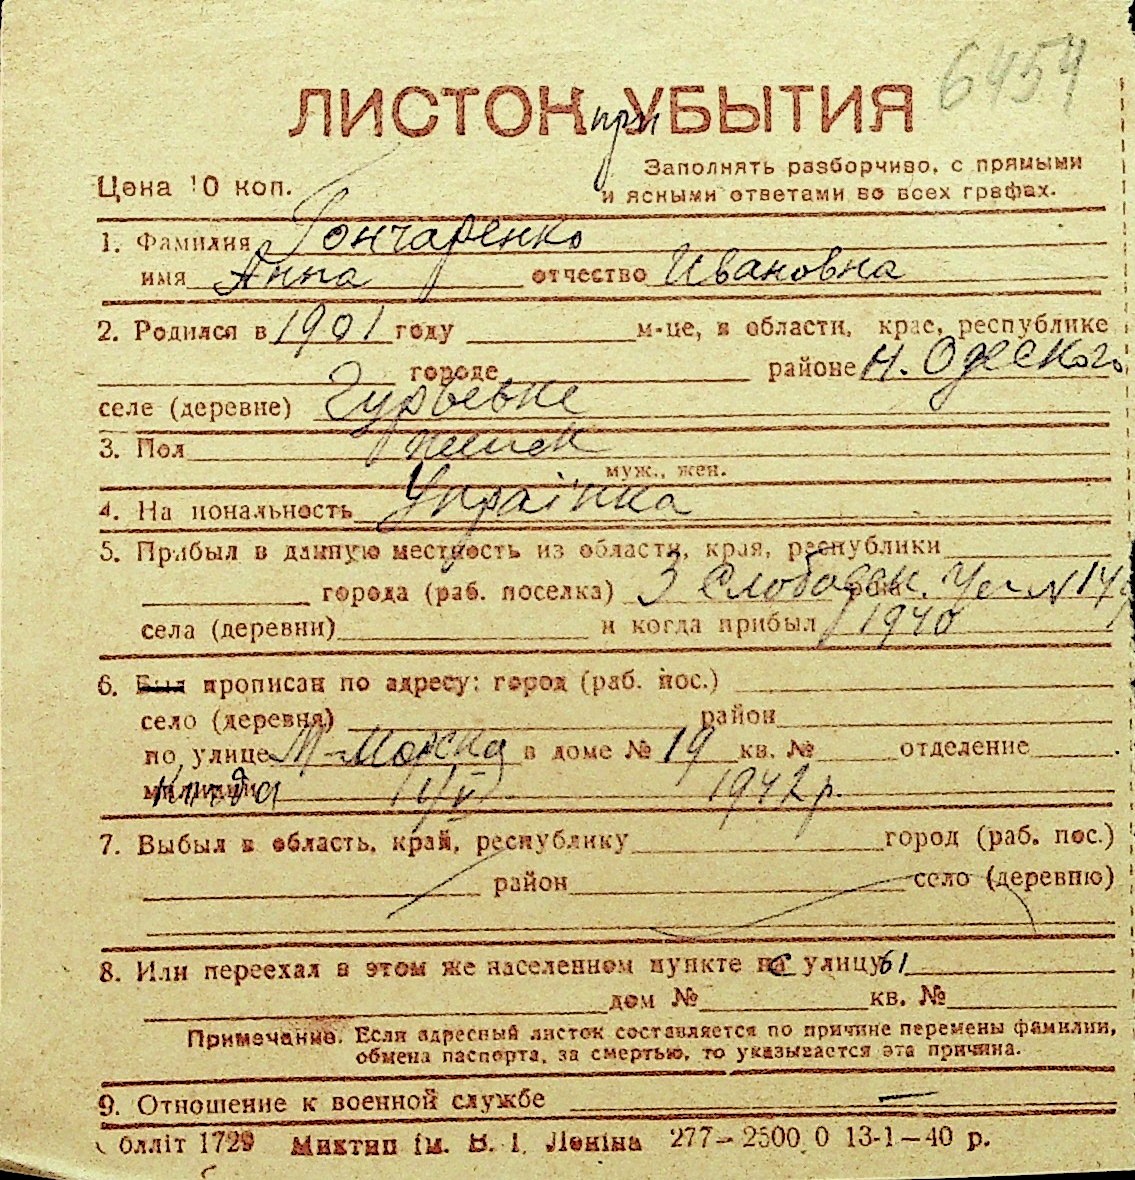 6454
ЛИСТОК при УБЫТИЯ
Заполнять разборчиво, с прямыми
Цена 10 коп.
и ясными ответами во всех графах.
1. Фамилия Гончаренко
имя Анна отчество Ивановна
2. Родился в 1901 году м-це, в области, крае, республике
городе районе Н. Одеского
селе (деревне) Гурьевке
3. Пол женск
муж., жен.
4. На иональность Украінка
5. Прибыл в данную местность из области, края, республики
города (раб. поселка) З Слободск. N 14
села (деревни) и когда прибыл 1940
6. Был прописан по адресу: город (раб. пос.)
село (деревня) район
по улице М-Морска в доме № 19 кв. № отделение
милиции 1942 р.
7. Выбыл в область, край, республику город (раб. пос.)
район село (деревню)
8. Или переехал в этом же населенном пункте на с улицу ы
дом № кв. №
Примечание. Если адресный листок составляется по причине перемены фамилии,
обмена паспорта, за смертью, то указывается эта причина.
9. Отношение к военной службе —
болліт 1729 Миктип ім. В. І. Леніна 277–2500 0 13-1–40 р.